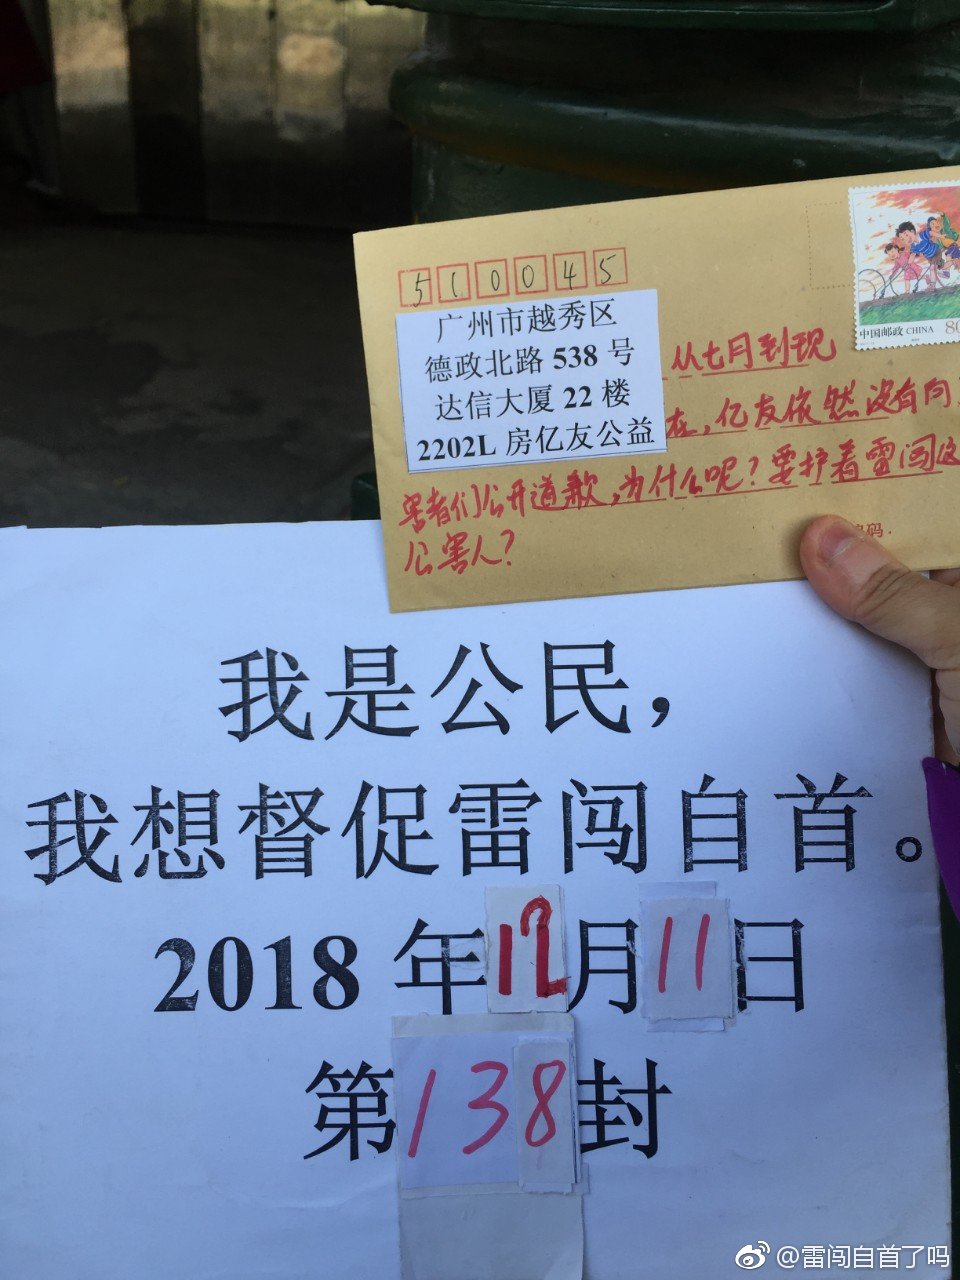 510045
广州市越秀区
德政北路 538 号
达信大厦 22 楼
2202L 房亿友公益
中国邮政 CHINA 80
从七月到现
在，亿友依然没有向
害者们公开道歉，为什么呢？要护着雷闯这
公害人？
编码
我是公民，
我想督促雷闯自首。
2018 年 12 月 11 日
第 138 封
@雷闯自首了吗